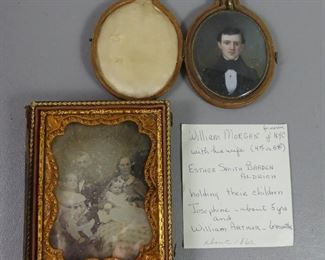 William Morgan of NYC
with his wife
Esther Smith Barden
Aldrich
holding their children
Josephine - about 5 yrs
and
William Arthur - 6 months